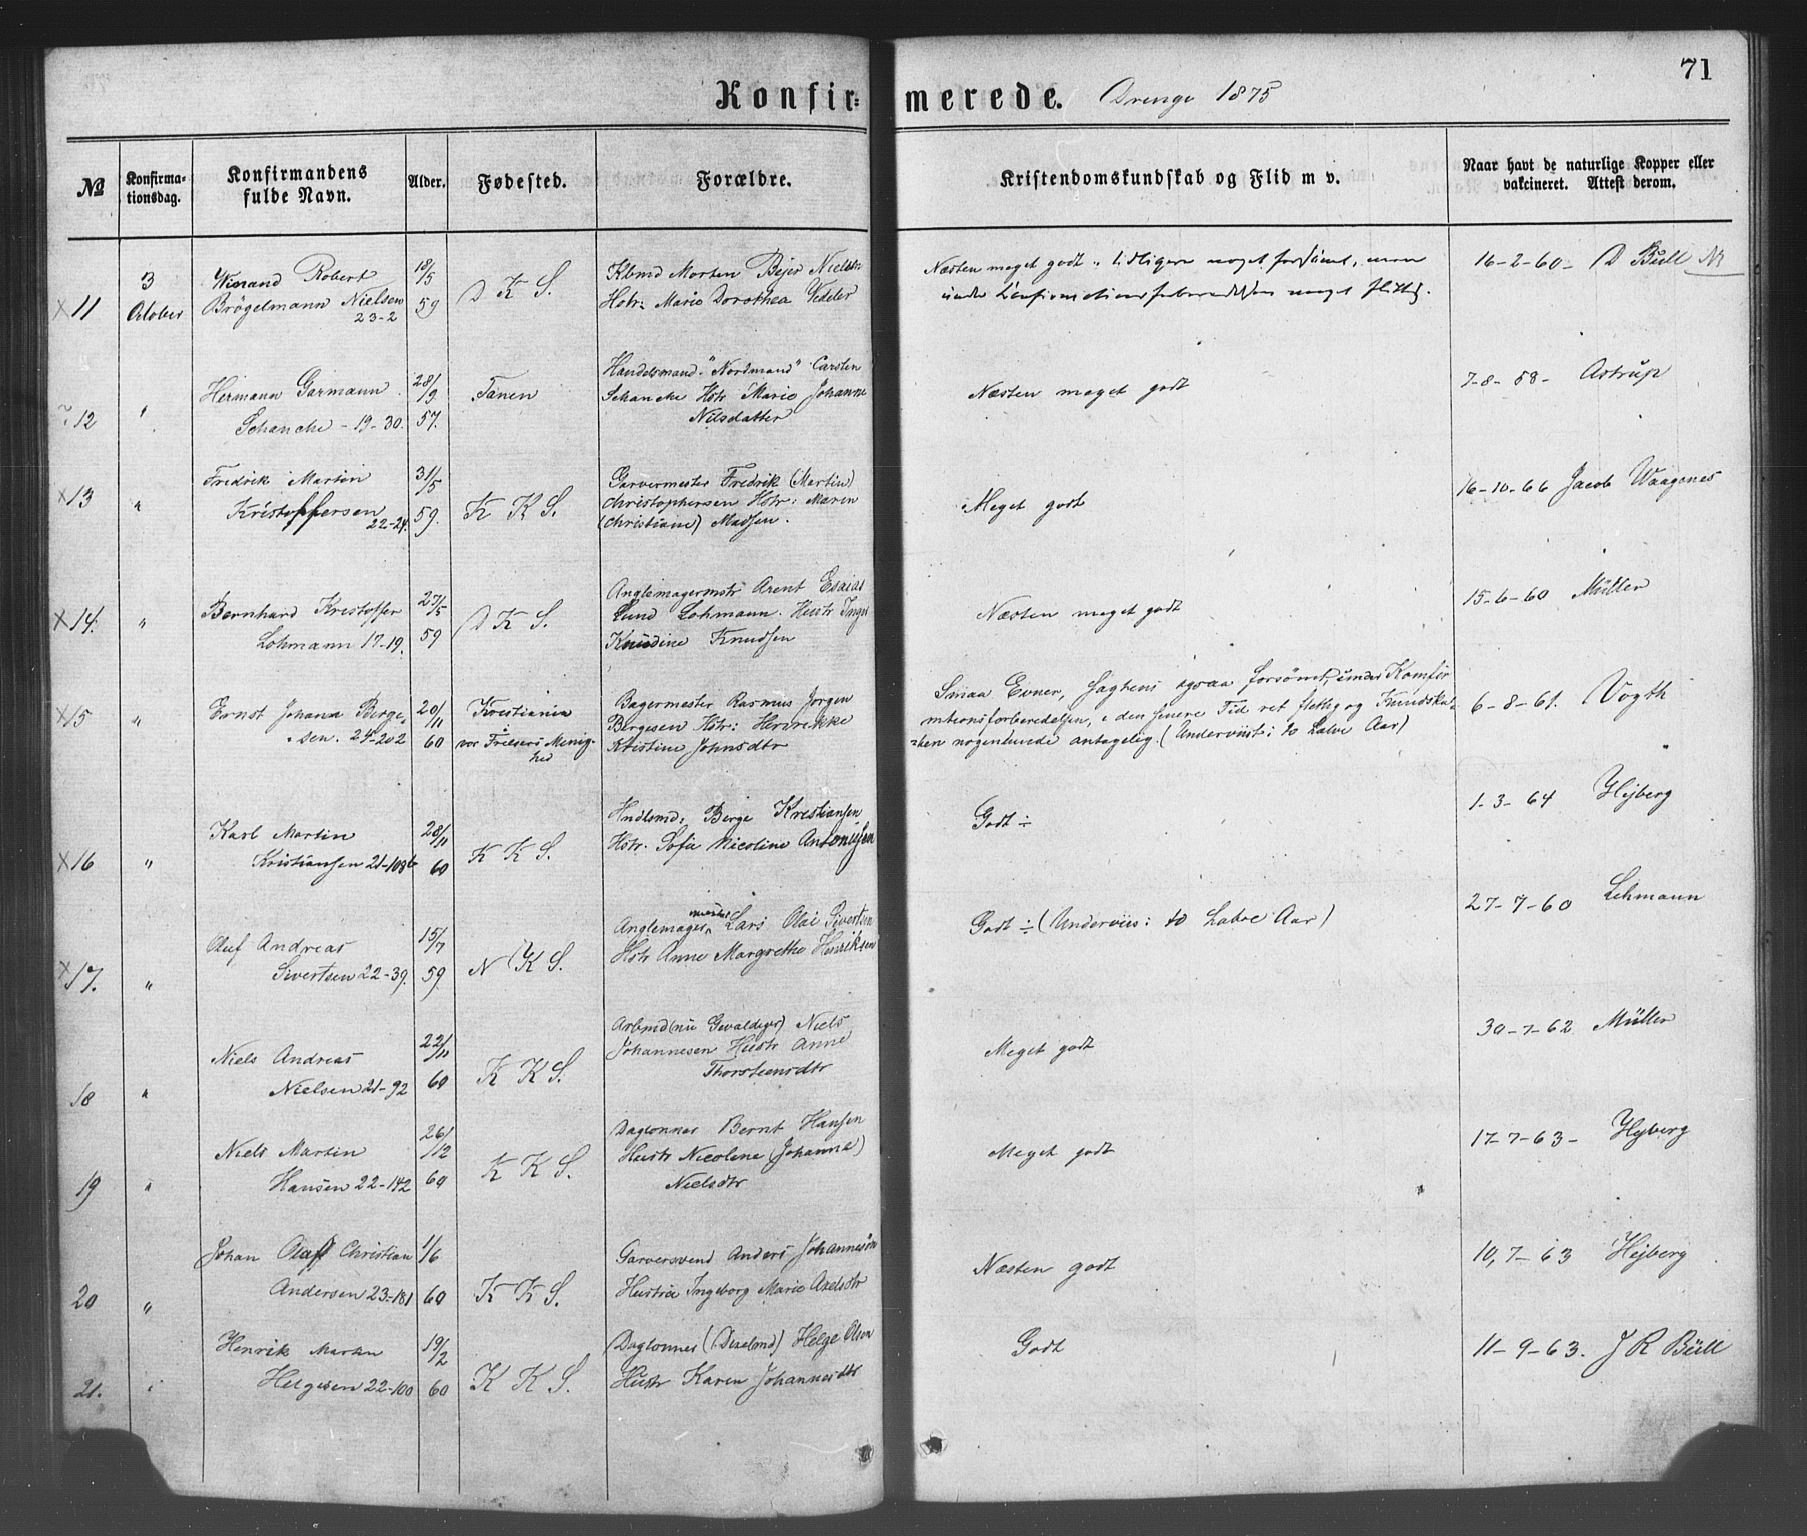 71
Konfir= merede. Drenge 1875
№
Konfirma-
tionsdag.
Konfirmandens
fulde Navn.
Alder.
Fødested.
Forældre.
Kristendomskundskab og Flid m v.
Naar havt de naturlige Kopper eller
vakcineret. Attest derom.
x 11
3
October
Winand Robert
Brögelmann Nielsen
23-2
18/5
59
D K S.
Kbmd Morten Bejer Nielsen
Hstr: Marie Dorothea Vedeler
Næsten meget godt, tidligere noget forsömt, men
under Confirmationsforberedelsen meget flittig.
16-2-60- D Bull
12
"
Hermann Garmann
Schanche - 19-30.
28/9
57.
Tanen
Handelsmand "Nordmand" Carsten
Schanche Hstr Marie Johanne
Nilsdatter
Næsten meget godt
7-8-58- Astrup
x13
"
Fredrik Martin
Kristoffersen
22-24.
31/5
59.
K K S.
Garvermester Fredrik (Martin)
Christophersen Hstr: Maren
(Christiane) Madsen.
Meget godt
16-10-66 Jacob Waagenes
x14.
"
Bernhard Kristoffer
Lohmann 17-19.
27/5
59
D K S.
Anglemagermstr Arent Esaias
Lund Lohmann. Hustr Inger
Knudine Knudsen
Næsten meget godt
15-6-60 Müller
x15
"
Ernst Johann Berge-
sen. 24-202
20/11
60
Kristiania
vor Frelsers Menig-
hed
Bagermester Rasmus Jorgen
Bergesen Hstr: Henrikke
Kristine Johnsdtr
Smaa Evner, ogsaa forsömt, under Konfir
mtionsforberedelsen, i den senere Tid ret flittig og Kundska-
ben nogenlunde antagelig. (Underviist: to halve Aar)
6-8-61. Vogth
x16
"
Karl Martin
Kristiansen 21-108b
28/11
60
K K S.
Hndlsmd: Berge Kristiansen
Hstr. Sofie Nicoline Antonisen
Godt ÷
1-3-64 Hejberg
x17.
"
Oluf Andreas
Sivertsen 22-39.
15/7
59.
N K S.
Anglemagermester Lars Olai Sivertsen
Hstr Anne Margrethe Henriksen
Godt ÷ (Underviis: to halve Aar)
27-7-60 Lehmann
18
"
Niels Andreas
Nielsen 21-92
22/10
60
K K S.
Arbmd (nu Gevaldiger) Niels
Johannesen Hustr Anne
Thorsteinsdtr
Meget godt
30-7-62 Müller
19
"
Niels Martin
Hansen 22-142
26/12
60
K K S.
Daglønner Bernt Hansen
Hustr Nicoline (Johanne)
Nielsdtr
Meget godt
17-7-63- Hejberg
20
"
Johan Olaf Christian
Andersen 23-181
1/6
60
K K S.
Garversvend Anders Johannesön
Hustru Ingeborg Marie Axelsdtr
Næsten godt
10,7-63 Hejberg
21.
"
Henrik Martin
Helgesen 22-100
19/2
60
K K S.
Daglønner Helge Olsen
Hustr Karen Johannesdtr
Godt
11-9-63. J R Büll